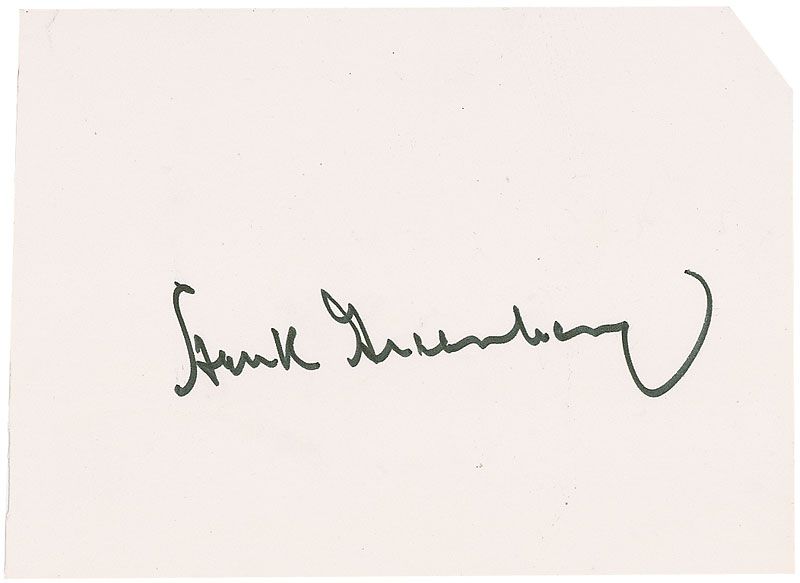 Hank Greenberg